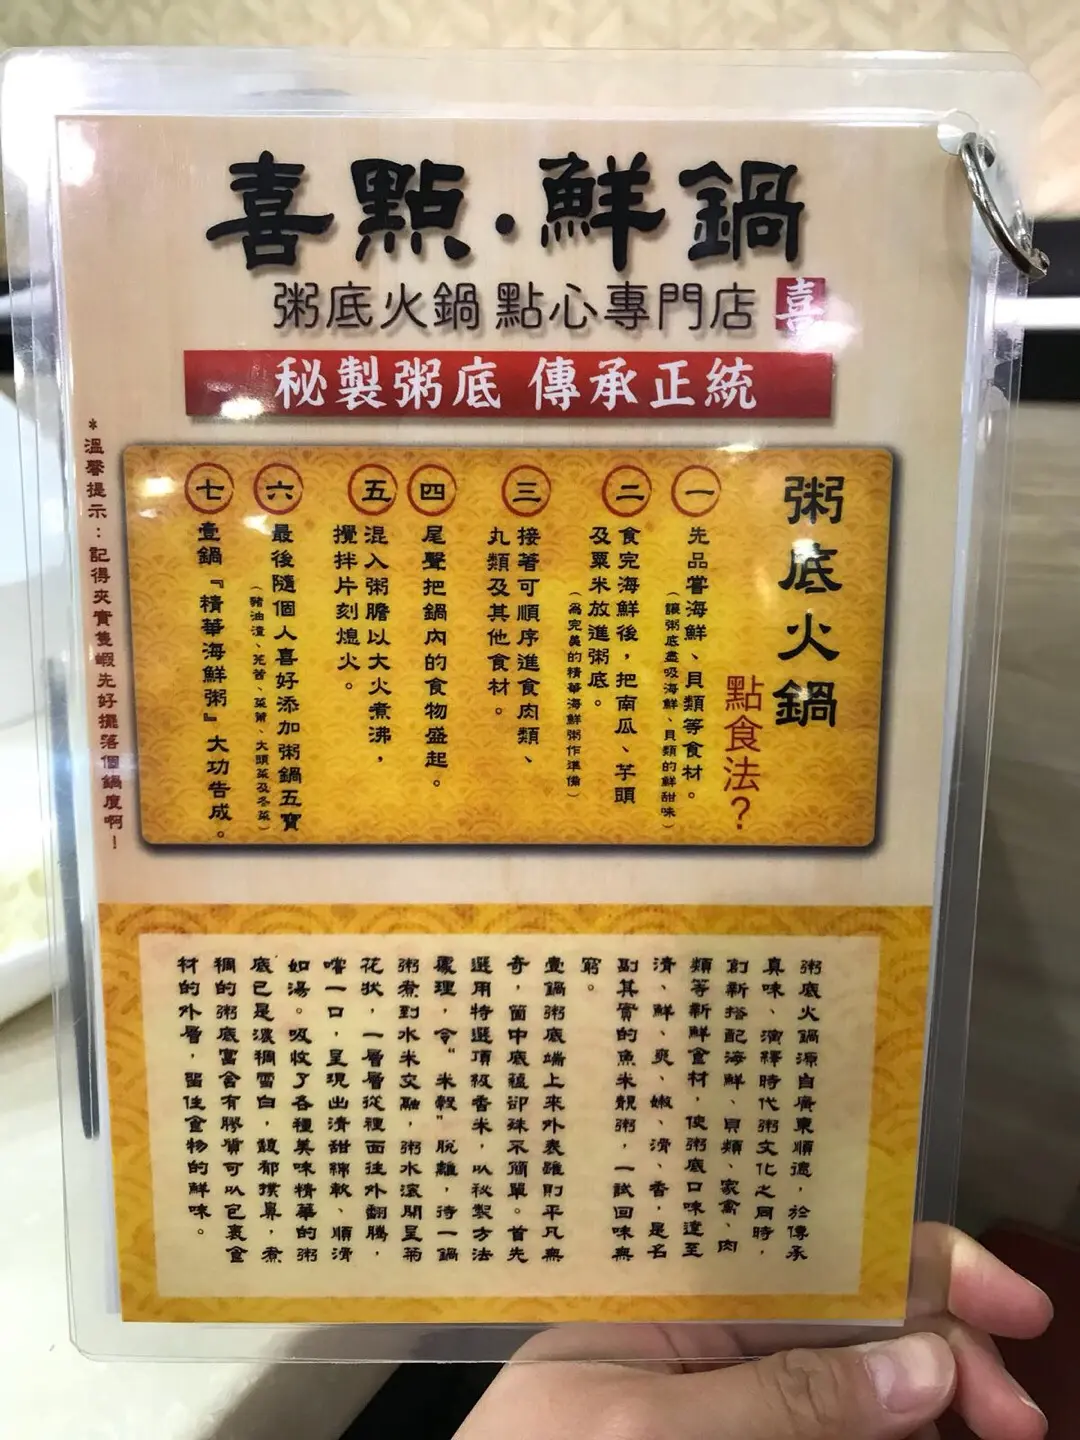 喜點·鮮鍋
粥底火鍋 點心專門店 喜
秘製粥底 傳承正統
粥底火鍋
點食法?
一
先品嘗海鮮、貝類等食材。
(讓粥底盡吸海鮮、貝類的鮮甜味)
二
食完海鮮後,把南瓜、芋頭
及粟米放進粥底。
(為完美的精華海鮮粥作準備)
三
接著可順序進食肉類、
丸類及其他食材。
四
尾聲把鍋內的食物盛起。
五
混入粥膽以大火煮沸,
攪拌片刻熄火。
六
最後隨個人喜好添加粥鍋五寶
(豬油渣、芫茜、菜脯、大頭菜及冬菜)
七
壹鍋『精華海鮮粥』大功告成。
*溫馨提示:記得夾實隻蝦先好擺落個鍋度啊!
粥底火鍋源自廣東順德,於傳承
真味、演繹時代粥文化之同時,
創新搭配海鮮、貝類、家禽、肉
類等新鮮食材,使粥底口味達至
清、鮮、爽、嫩、滑、香,是名
副其實的魚米靚粥,一試回味無
窮。
壹鍋粥底端上來外表雖則平凡無
奇,箇中底蘊卻殊不簡單。首先
選用特選頂級香米,以秘製方法
處理,令"米穀"脫離,待一鍋
粥煮到水米交融,粥水滾開呈菊
花狀,一層層從裡面往外翻騰,
嚐一口,呈現出清甜綿軟、順滑
如湯。吸收了各種美味精華的粥
底已是濃稠雪白,馥郁撲鼻,煮
稠的粥底富含有膠質可以包裹食
材的外層,留住食物的鮮味。